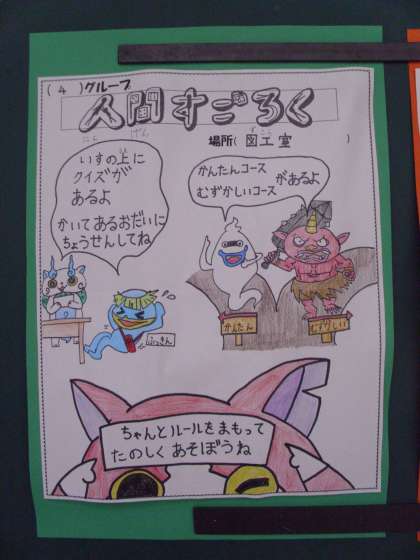 (4)グループ
人間すごろく
にん げん
場所(図工室)
いすの上に
クイズが
あるよ
かいてあるおだいに
ちょうせんしてね
かんたんコース
むずかしいコース
があるよ
かんたん
むずかしい
ちゃんとルールをまもって
たのしくあそぼうね